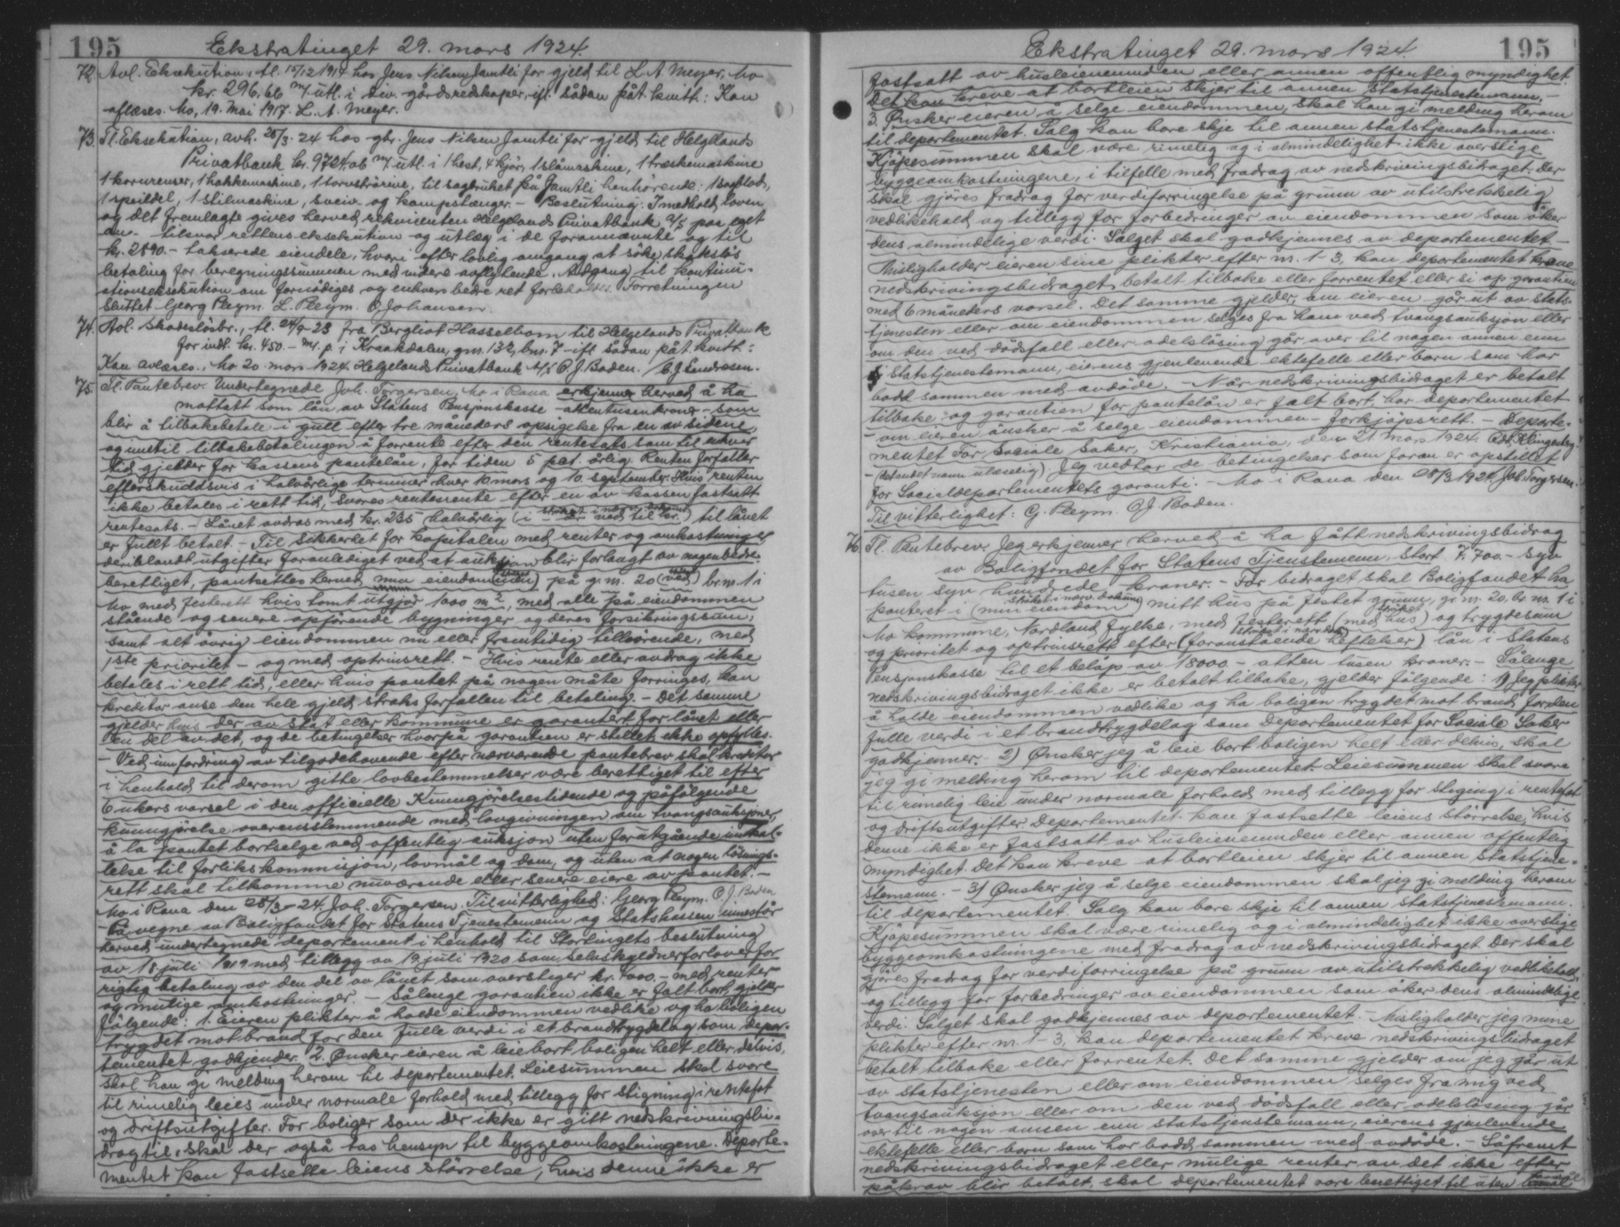 195 Ekstratinget 29. mars 1924.
72. Avl. Eksekution, tl. 15/12 1914 hos Jens Nilsen Jamtli for gjeld til L. A. Meyer, Mo
kr. 296,66 m/ utl. i div. gårdsredskaper, ifl. sådan påt. kvitt: Kan
avlæses. Mo, 19. Mai 1917. L. A. Meyer.
73. Tl. Eksekution, avh. 28/3 24 hos gbr. Jens Nilsen Jamtli for gjeld til Helgelands
Privatbank kr. 9724.06 m/ utl. i 1 hest, 4 kjör, 1 slåmaskine, 1 træskemaskine
1 kornrenser, 1 hakkemaskine, 1 torvströrive, til sagbruket på Jamtli henhörende: 1 sagblad,
1 speildel, 1 stilmaskine, sveiv og kampslanger. - Beslutning: I medhold loven
og det fremlagte gives herved rekvirenten Helgelands Privatbank A/S paa eget
an- tilsvar rettens eksekution og utlæg i de forannævnte og til
kr. 2890.- takserede eiendele, hvori efter lovlig omgang at söke skadeslös
betaling for beregningssummen med videre avflytende. Adgang til kontinu-
ationseksekution om fornödiges og enhvers bedre ret forbeholdes. Forretningen
sluttet Georg Pleym. L. Pleym. O. Johansen.
74. Avl. Skadeslösbr., tl. 24/9-23 fra Bergliot Hasselbom til Helgelands Privatbank
for indl. kr. 450.- m. p. i Kraakdalen, g.nr. 132, b.nr. 7 - ifl. sådan påt. kvitt:
Kan avlæses. Mo 20 mars 1924. Helgelands Privatbank A/S O. J. Baden. / C. J. Andresen.
75. Tl. Pantebrev. Undertegnede Joh. Torgersen, Mo i Rana erkjenner herved å ha
mottatt som lån av Statens Pensjonskasse - attentusen kroner - som
blir å tilbakebetale i gull efter tre måneders opsigelse fra en av sidene
og inntil tilbakebetalingen å forrente efter den rentesats som til enhver
tid gjelder for kassens pantelån, for tiden 5 pct. årlig. Renten forfaller
efterskuddsvis i halvårlige terminer hver 10. mars og 10. september. Hvis renten
ikke betales i rett tid, svares rentesrente efter en av kassen fastsatt
rentesats. - Lånet avdras med kr. 235 halvårlig (i ned til kr.) til lånet
er fullt betalt. - Til sikkerhet for kapitalen med renter og omkostninger
deriblandt utgifter foranlediget ved at auksjon blir forlangt av nogen bedre-
berettiget, pantsettes herved min eiendom (min) på g.nr. 20 (ved) br.nr. 1 i
Mo med festerett hvis tomt utgjör 1000 m², med alle på eiendommen
stående og senere opförende bygninger og deres forsikringssum,
samt alt övrig eiendommen nu eller fremtidig tilhörende, med
1ste prioritet - og med optrinsrett. - Hvis rente eller avdrag ikke
betales i rett tid, eller hvis pantet på nogen måte forringes, kan
kreditor anse den hele gjeld straks forfallen til betaling. - Det samme
gjelder hvis der av stat eller kommune er garantert for lånet eller
en del av det, og de betingelser hvorpå garantien er stillet ikke opfylles.
- Ved innfordring av tilgodehavende efter nærværende pantebrev skal kreditor
i henhold til derom gitte lovbestemmelser være berettiget til efter
6 ukers varsel i den officielle Kunngjörelsestidende og påfölgende
kunngjörelse overensstemmende med lovgivningen om tvangsauksjoner,
å la pantet bortselge ved offentlig auksjon uten foregående innkal-
lelse til forlikskommisjon, lovmål og dom, og uten at nogen lösnings-
rett skal tilkomme nuværende eller senere eiere av pantet. -
Mo i Rana den 28/3-24. Joh. Torgersen. Til vitterlighet: Georg Pleym. O. J. Baden
- På vegne av Boligfondet for Statens Tjenestemenn og Statskassen innestår
herved undertegnede departement i henhold til Stortingets beslutning
av 18 juli 1919 med tillegg av 19 juli 1920 som selvskyldnerforlover for
rigtig betaling av den del av lånet som overstiger kr. 7000.- med renter
og mulige omkostninger. - Sålenge garantien ikke er falt bort, gjelder
fölgende: 1. Eieren plikter å holde eiendommen vedlike og ha boligen
trygdet mot brand for den fulle verdi i et brandtrygdelag som depar-
tementet godkjender. 2. Önsker eieren å leie bort boligen helt eller delvis,
skal han gi melding herom til departementet. Leiesummen skal svare
til rimelig leie under normale forhold med tillegg for stigning i rentefot
og driftsutgifter. For boliger som der ikke er gitt nedskrivningsbi-
drag til, skal der også tas hensyn til byggeomkostningene. Departe-
mentet kan fastsette leiens störrelse, hvis denne ikke er
Ekstratinget 29. mars 1924. 195
fastsatt av husleienemnden eller annen offentlig myndighet.
Det kan kreve at bortleien skjer til annen statstjenestemann. -
3. Önsker eieren å selge eiendommen, skal han gi melding herom
til departementet. Salg kan bare skje til annen statstjenestemann.
Kjöpesummen skal være rimelig og i almindelighet ikke overstige
byggeomkostningene, i tilfelle med fradrag av nedskrivningsbidraget. Der
skal gjöres fradrag for verdiforringelse på grunn av utilstrekkelig
vedlikehold og tillegg for forbedringer av eiendommen som öker
dens almindelige verdi. Salget skal godkjennes av departementet. -
Misligholder eieren sine plikter efter nr. 1-3, kan departementet kreve
nedskrivningsbidraget betalt tilbake eller forrentet eller si op garantien
med 6 måneders varsel. Det samme gjelder, om eieren går ut av stats-
tjenesten eller om eiendommen selges fra ham ved tvangsauksjon eller
om den ved dödsfall eller odelslösning går over til nogen annen enn
statstjenestemann, eierens gjenlevende ektefelle eller barn som har
bodd sammen med avdöde. - Når nedskrivningsbidraget er betalt
tilbake og garantien for pantelån er falt bort, har departementet
- om eieren önsker å selge eiendommen - forkjöpsrett. - Departe-
mentet for Sociale Saker, Kristiania, den 21 mars 1924. Klingenberg.
- (et andet navn uleselig). Jeg vedtar de betingelser som foran er opstillet
for Socialdepartementets garanti. - Mo i Rana den 28/3 1924 Joh. Torgersen
Til vitterlighet: G. Pleym. O. J. Baden.
76. Tl. Pantebrev. Jeg erkjenner herved å ha fått nedskrivningsbidrag
av Boligfondet for Statens Tjenestemenn, stort 7,700.- syv
tusen syv hundrede kroner. - For bidraget skal Boligfondet ha
panterett i (min eiendom) mitt hus på festet grunn, gr. nr. 20, br. nr. 1 i
Mo kommune, Nordland fylke, med festerett (med hus) og trygdesum
og prioritet og optrinsrett efter (foranstående heftelser) lån i Statens
Pensjonskasse til et belöp av 18000.- atten tusen kroner. - Sålenge
nedskrivningsbidraget ikke er betalt tilbake, gjelder fölgende: 1) Jeg plikter
å holde eiendommen vedlike og ha boligen trygdet mot brand for den
fulle verdi i et brandtrygdelag som Departementet for Sociale Saker
godkjenner. 2) Önsker jeg å leie bort boligen helt eller delvis, skal
jeg gi melding herom til departementet. Leiesummen skal svare
til rimelig leie under normale forhold med tillegg for stigning i rentefot
og driftsutgifter. Departementet kan fastsette leiens störrelse, hvis
denne ikke er fastsatt av husleienemnden eller annen offentlig
myndighet. Det kan kreve at bortleien skjer til annen statstjene-
stemann. - 3) Önsker jeg å selge eiendommen skal jeg gi melding herom
til departementet. Salg kan bare skje til annen statstjenestemann.
Kjöpesummen skal være rimelig og i almindelighet ikke overstige
byggeomkostningene med fradrag av nedskrivningsbidraget. Der skal
gjöres fradrag for verdiforringelse på grunn av utilstrekkelig vedlikehold
og tillegg for forbedringer av eiendommen som öker dens almindelige
verdi. Salget skal godkjennes av departementet. - Misligholder jeg mine
plikter efter nr. 1-3, kan departementet kreve nedskrivningsbidraget
betalt tilbake eller forrentet. Det samme gjelder om jeg går ut
av statstjenesten eller om eiendommen selges fra mig ved
tvangsauksjon eller om den ved dödsfall eller odelslösning går
over til nogen annen enn statstjenestemann, eierens gjenlevende
ektefelle eller barn som har bodd sammen med avdöde. - Såfremt
nedskrivningsbidraget eller mulige renter av det ikke efter
påkrav blir betalt, skal departementet være berettiget til uten